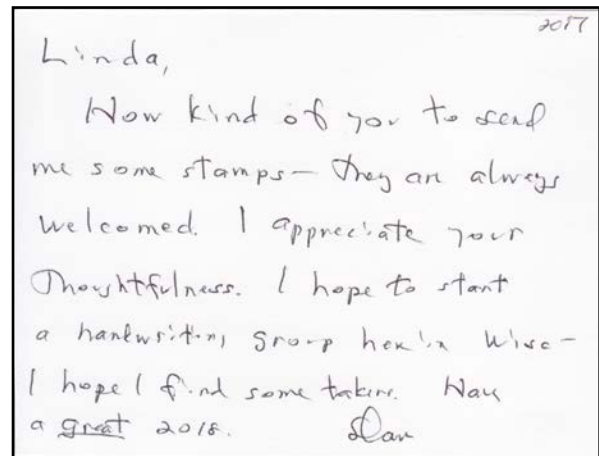 2017
Linda,
How kind of you to send
me some stamps— they are always
welcomed. I appreciate your
thoughtfulness. I hope to start
a handwriting group here in Wisc—
I hope I find some takers. Have
a great 2018.